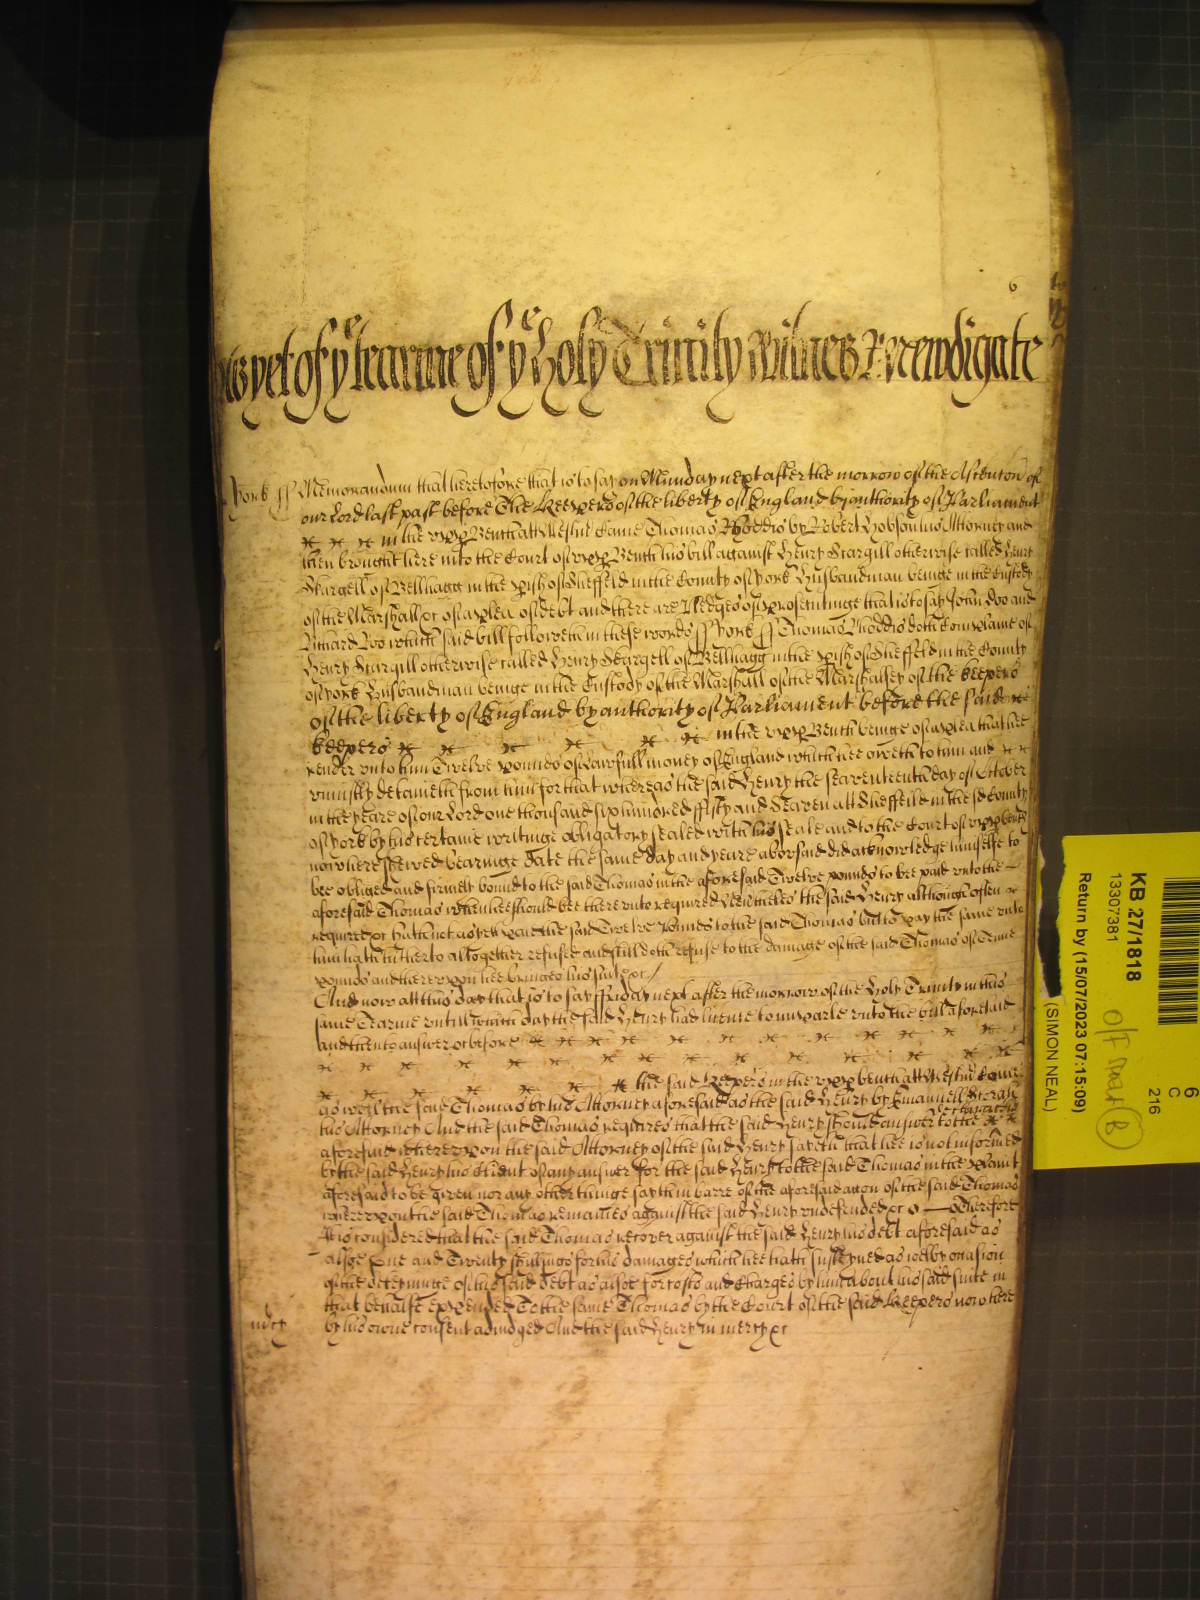 6
as yet of ye tearme of ye Holy Trinity Witnes R Newdigate
York ss Memorandum that heretofore that is to say on Munday next after the morrow of the Ascention of
our Lord last past before The Keepers of the liberty of England by authority of Parliament
in the upp Bench att Westmr Came Thomas Rhoddis by Robert Hobson his Attorney and
then brought here into the Court of upp Bench his bill against Henry Scargill otherwise called Henry
Skargell of Bellhagg in the pish of Sheffeild in the County of York Husbandman beinge in the Custody
of the Marshall &c of a plea of debt and there are Pledges of prosecutinge that is to say John Doo and
Richard Roo which said bill followeth in these words ss York ss Thomas Rhoddis doth Complaine of
Henry Scargill otherwise called Henry Skargell of Bellhagg in the pish of Sheffeild in the County
of York Husbandman beinge in the Custody of the Marshall of the Marshalsey of the keepers
of the liberty of England by authority of Parliament before the said
keepers in the upp Bench beinge of a plea that hee
render unto him Twelve pounds of lawfull money of England which hee oweth to him and
uniustly detaineth from him for that whereas the said Henry the seaventeenth day of October
in the yeare of our Lord one thousand six hundred fifty and Seaven att Sheffeild in the sd County
of York by his certaine writinge obligatory sealed with his seale and to the Court of upp bench
now here shewed bearinge date the same day and yeare aboresaid did acknowledge himselfe to
bee obliged and firmely bound to the said Thomas in the aforesaid Twelve pounds to bee paid unto the
aforesaid Thomas when hee should bee thereunto required Neverthelesse the said Henry although often
required &c hath not as yet paid the said Twelve Pounds to the said Thomas but to pay the same unto
him hath hitherto altogether refused and still doth refuse to the damage of the said Thomas of Tenne
pounds and thereupon hee bringes his suite &c /
And now att this day that is to say Friday next after the morrow of the Holy Trinity in this
same Tearme untill which day the said Henry had licence to imparle unto the bill aforesaid
and then to answer &c before
the said Keepers in the upp bench att Westmr Come
as well the said Thomas by his Attorney aforesaid as the said Henry by Emanuell
his Attorney And the said Thomas requires that the said Henry should answer to the declaracon
aforesaid whereupon the said Attorney of the said Henry sayeth that hee is not informed
by the said Henry his Client of any answer for the said Henry to the said Thomas in the plaint
aforesaid to be given nor any other thinge sayth in barre of the aforesaid accon of the said Thomas
whereupon the said Thomas remaines against the said Henry undefended &c Therefore
it is considered that the said Thomas recover against the said Henry his debt aforesaid as
alsoe One and Twenty shillings for his damages which hee hath susteyned as well by occasion
of the deteyninge of his said debt as alsoe for costs and Charges by him about his said suite in
that behalfe expended To the same Thomas by the Court of the said Keepers now here
by his owne consent adiudged And the said Henry in mercy &c
mcy
KB 27/1818
13307381
Return by (15/07/2023 07:15:09)
(SIMON NEAL)
6
C
216
B